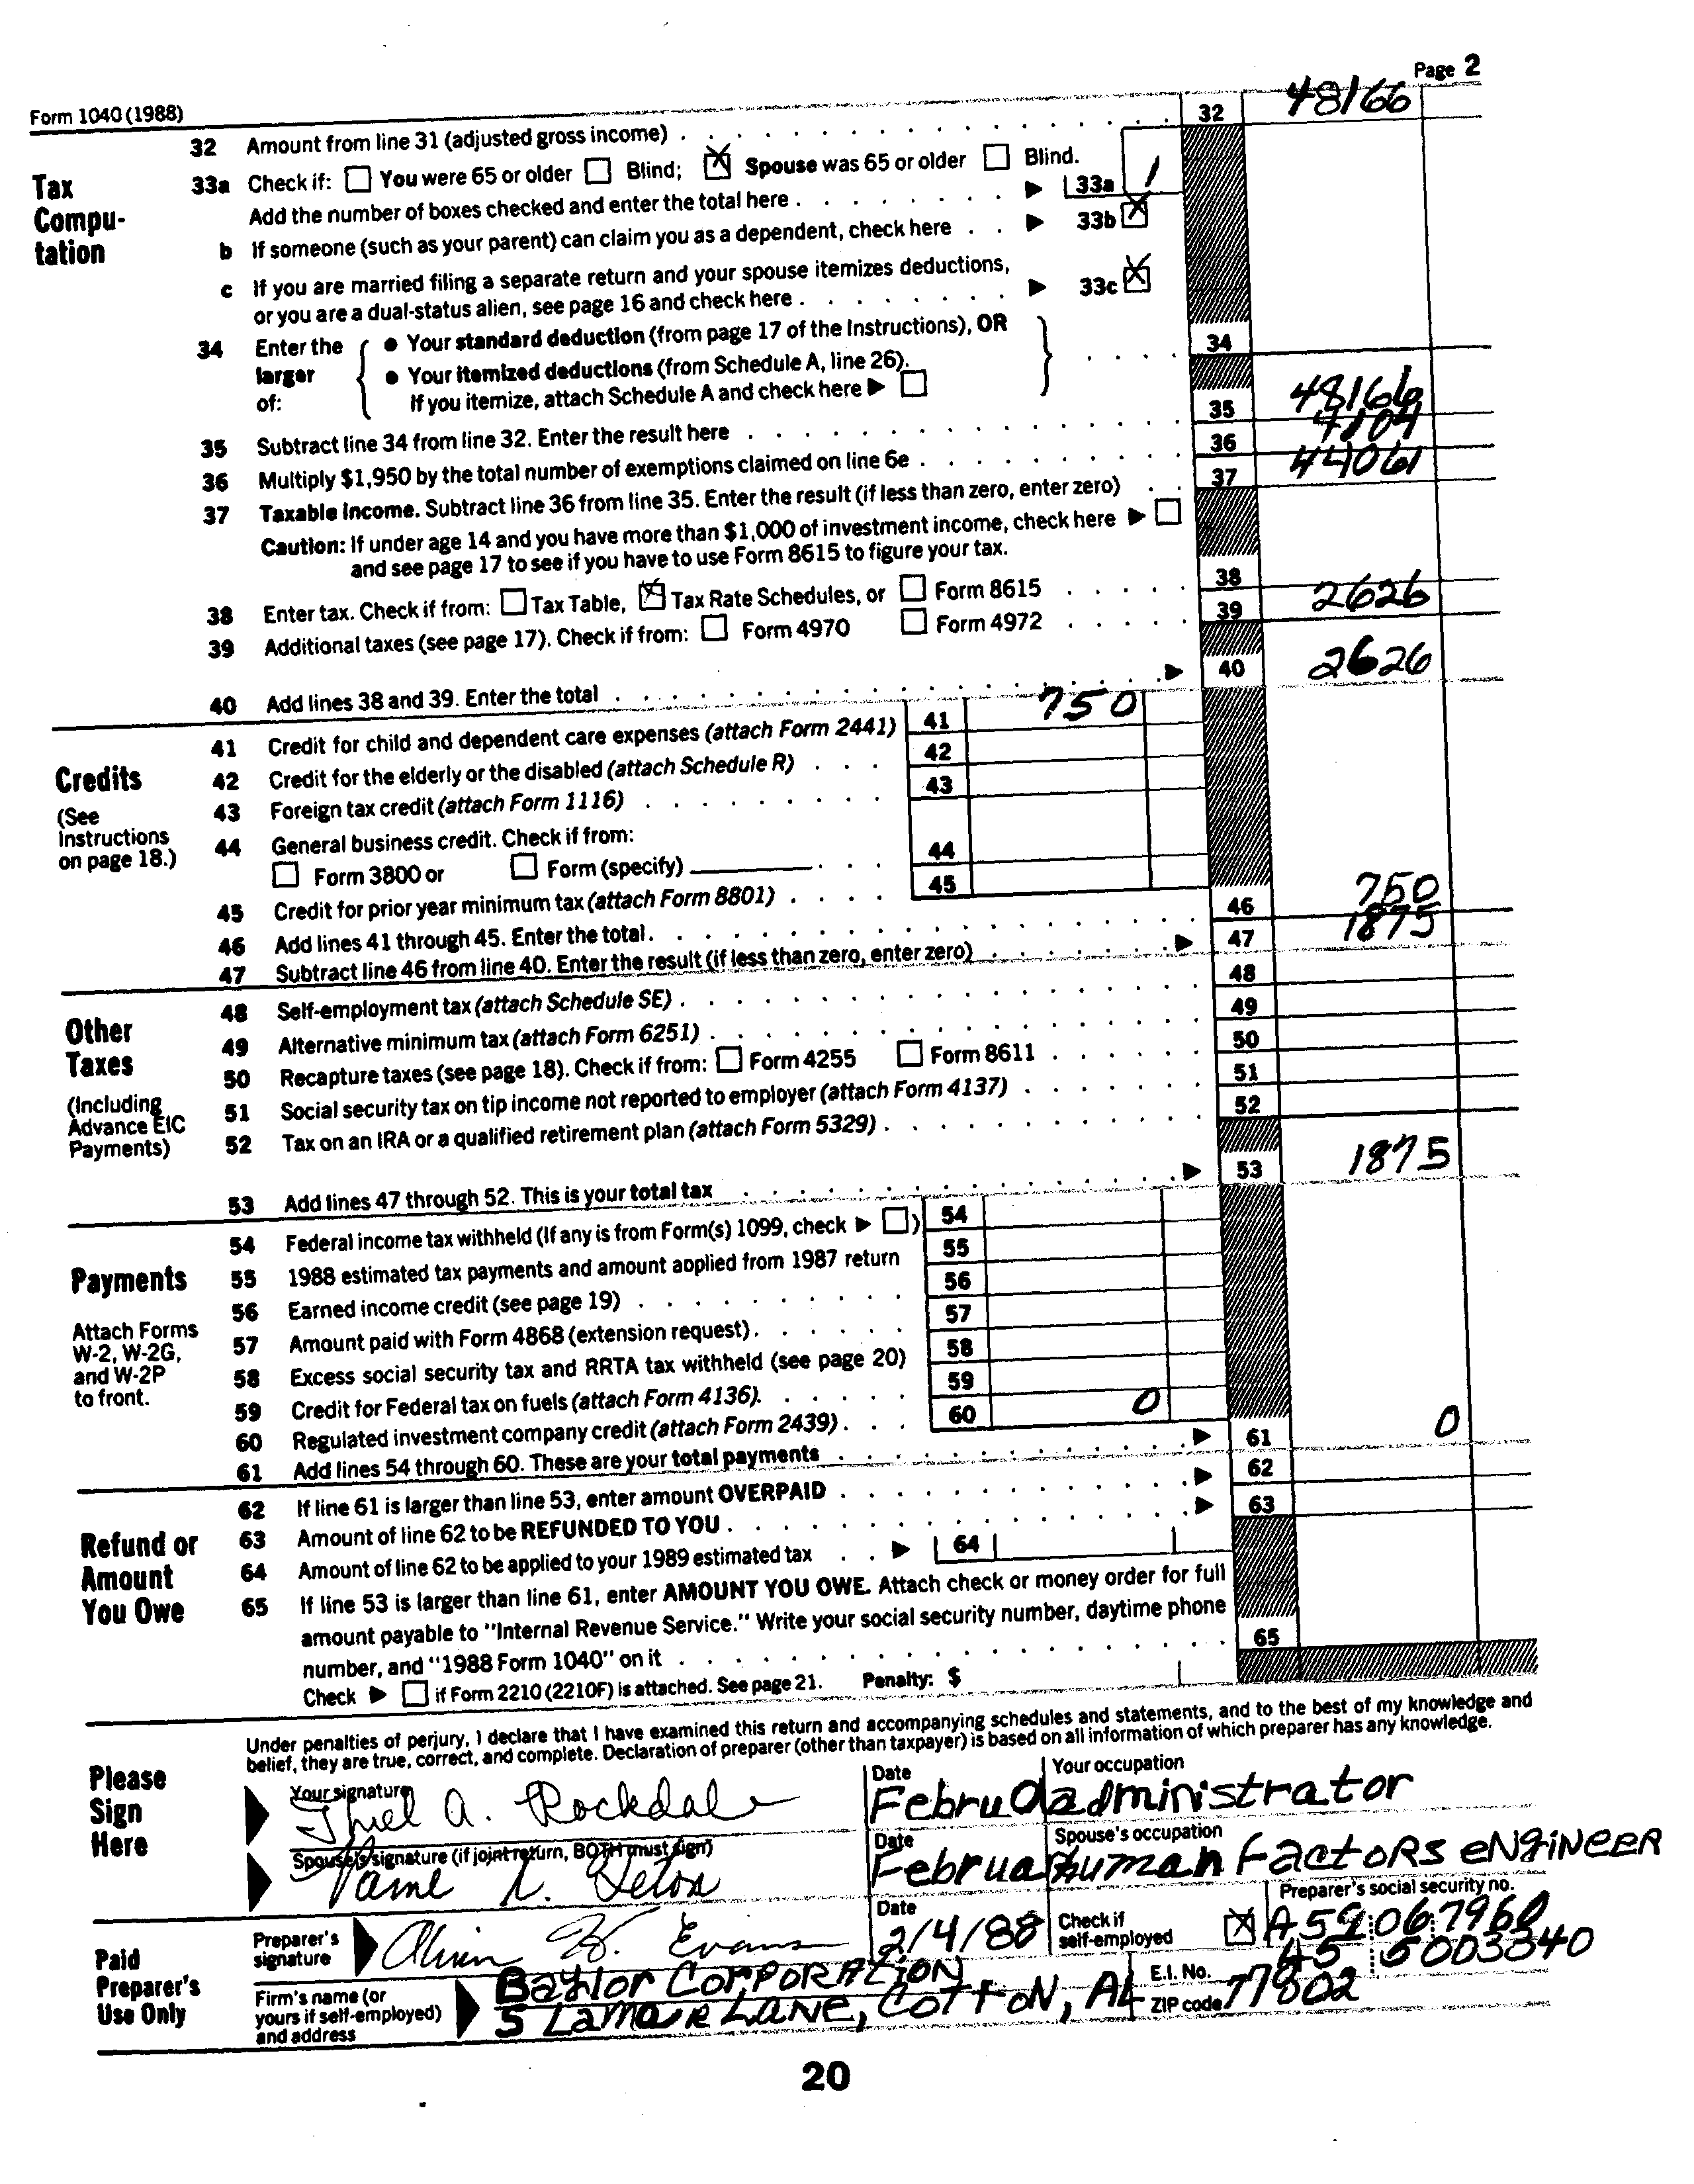 Form 1040 (1988) Page 2
Tax Compu- tation
32 Amount from line 31 (adjusted gross income) 32 48166
33a Check if: You were 65 or older Blind; X Spouse was 65 or older Blind.
Add the number of boxes checked and enter the total here 33a 1
b If someone (such as your parent) can claim you as a dependent, check here 33b X
c If you are married filing a separate return and your spouse itemizes deductions,
or you are a dual-status alien, see page 16 and check here 33c X
34 Enter the larger of:
• Your standard deduction (from page 17 of the Instructions), OR
• Your itemized deductions (from Schedule A, line 26).
If you itemize, attach Schedule A and check here
34
35 Subtract line 34 from line 32. Enter the result here 35 48166
36 Multiply $1,950 by the total number of exemptions claimed on line 6e 36 4104
37 Taxable income. Subtract line 36 from line 35. Enter the result (if less than zero, enter zero) 37 44061
Caution: If under age 14 and you have more than $1,000 of investment income, check here
and see page 17 to see if you have to use Form 8615 to figure your tax.
38 Enter tax. Check if from: Tax Table, X Tax Rate Schedules, or Form 8615 38 2626
39 Additional taxes (see page 17). Check if from: Form 4970 Form 4972 39
40 Add lines 38 and 39. Enter the total 40 2626
Credits
(See Instructions on page 18.)
41 Credit for child and dependent care expenses (attach Form 2441) 41 750
42 Credit for the elderly or the disabled (attach Schedule R) 42
43 Foreign tax credit (attach Form 1116) 43
44 General business credit. Check if from:
Form 3800 or Form (specify) 44
45 Credit for prior year minimum tax (attach Form 8801) 45
46 Add lines 41 through 45. Enter the total. 46 750
47 Subtract line 46 from line 40. Enter the result (if less than zero, enter zero) 47 1875
Other Taxes
(Including Advance EIC Payments)
48 Self-employment tax (attach Schedule SE) 48
49 Alternative minimum tax (attach Form 6251) 49
50 Recapture taxes (see page 18). Check if from: Form 4255 Form 8611 50
51 Social security tax on tip income not reported to employer (attach Form 4137) 51
52 Tax on an IRA or a qualified retirement plan (attach Form 5329) 52
53 Add lines 47 through 52. This is your total tax 53 1875
Payments
Attach Forms W-2, W-2G, and W-2P to front.
54 Federal income tax withheld (If any is from Form(s) 1099, check ) 54
55 1988 estimated tax payments and amount applied from 1987 return 55
56 Earned income credit (see page 19) 56
57 Amount paid with Form 4868 (extension request) 57
58 Excess social security tax and RRTA tax withheld (see page 20) 58
59 Credit for Federal tax on fuels (attach Form 4136). 59
60 Regulated investment company credit (attach Form 2439) 60 0
61 Add lines 54 through 60. These are your total payments 61 0
Refund or Amount You Owe
62 If line 61 is larger than line 53, enter amount OVERPAID 62
63 Amount of line 62 to be REFUNDED TO YOU 63
64 Amount of line 62 to be applied to your 1989 estimated tax 64
65 If line 53 is larger than line 61, enter AMOUNT YOU OWE. Attach check or money order for full
amount payable to "Internal Revenue Service." Write your social security number, daytime phone
number, and "1988 Form 1040" on it 65
Check if Form 2210 (2210F) is attached. See page 21. Penalty: $
Please Sign Here
Under penalties of perjury, I declare that I have examined this return and accompanying schedules and statements, and to the best of my knowledge and
belief, they are true, correct, and complete. Declaration of preparer (other than taxpayer) is based on all information of which preparer has any knowledge.
Your signature A. Rockdale Date Februa Your occupation administrator
Spouse's signature (if joint return, BOTH must sign) Date Februa Spouse's occupation human factors engineer
Paid Preparer's Use Only
Preparer's signature H. Evans Date 2/4/88 Check if self-employed X Preparer's social security no. A59 06 7960
Firm's name (or yours if self-employed) and address Baylor Corporation E.I. No. A5 5003040
5 Lamar Lane, Cotton, AL ZIP code 77802
20